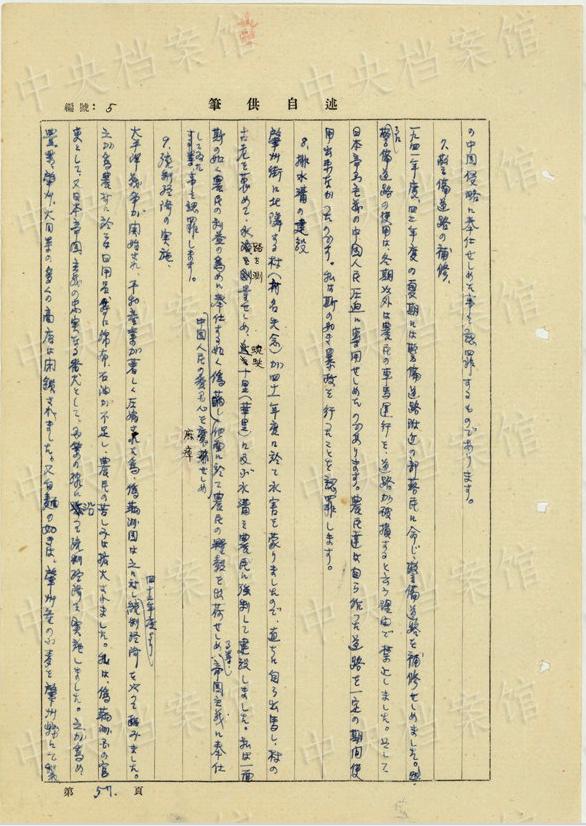 述自供筆
編號：5
の中国侵略に奉仕せしめた事を認罪するものであります。
7、警備道路の補修、
一九四一年度、四二年度の夏期には警備道路附近の部落民に命じ、警備道路を補修せしめました。
警備道路の使用は、冬期以外は農民の車馬運行を、道路が破損するという理由で禁止しました。そして
日本帝国主義の中国人民圧迫に専用せしめたのであります。農民達は自ら作った道路を一定の期間使
用出来なかったのです。私は斯の如き暴政を行ったことを認罪します。
8、排水溝の建設
肇州街に地隣する村（村名失念）が四十一年度に於て水害を蒙りましたので、直ちに自ら出馬し、村の
古老を集めて、水路を測量せしめ、十里（華里）に及ぶ水溝を農民に強制して建設しました。私は一面
斯の如く農民の利益の為めに奉仕する如く偽装し、他面に於て農民の糧穀を出荷せしめ、帝国主義に奉仕
中国人民の愛国心を麻痺せしめ
して居た事を認罪します。
9、統制経済の実施、
太平洋戦争が開始され、平和産業が著しく圧縮された為、偽満洲国は四十一年度より統制経済を以て臨みました。
之が為農村に於ては日用品、綿布、石油が不足し、農民の苦しみは拡大されました。私は、偽満洲国の官
吏として、又日本帝国主義の忠実なる番犬として、統制経済を実施しました。之が為め
肇州、大同の多くの商店は閉鎖されました。又白麺の如きは、肇州産の小麦を肇州
第 57. 頁
中央档案馆